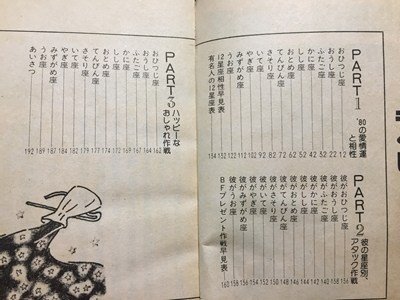 PART1 '80の愛情運と相性
おひつじ座 12
おうし座 22
ふたご座 32
かに座 42
しし座 52
おとめ座 62
てんびん座 72
さそり座 82
いて座 92
やぎ座 102
みずがめ座 112
うお座 122
12星座相性早見表 132
有名人の12星座表 134
PART2 彼の星座別、アタック作戦
彼がおひつじ座 136
彼がおうし座 138
彼がふたご座 140
彼がかに座 142
彼がしし座 144
彼がおとめ座 146
彼がてんびん座 148
彼がさそり座 150
彼がいて座 152
彼がやぎ座 154
彼がみずがめ座 156
彼がうお座 158
BFプレゼント作戦早見表 160
PART3 ハッピーなおしゃれ作戦
おひつじ座 162
おうし座 164
ふたご座 167
かに座 169
しし座 172
おとめ座 174
てんびん座 177
さそり座 179
いて座 182
やぎ座 184
みずがめ座 187
うお座 189
あいさつ 192